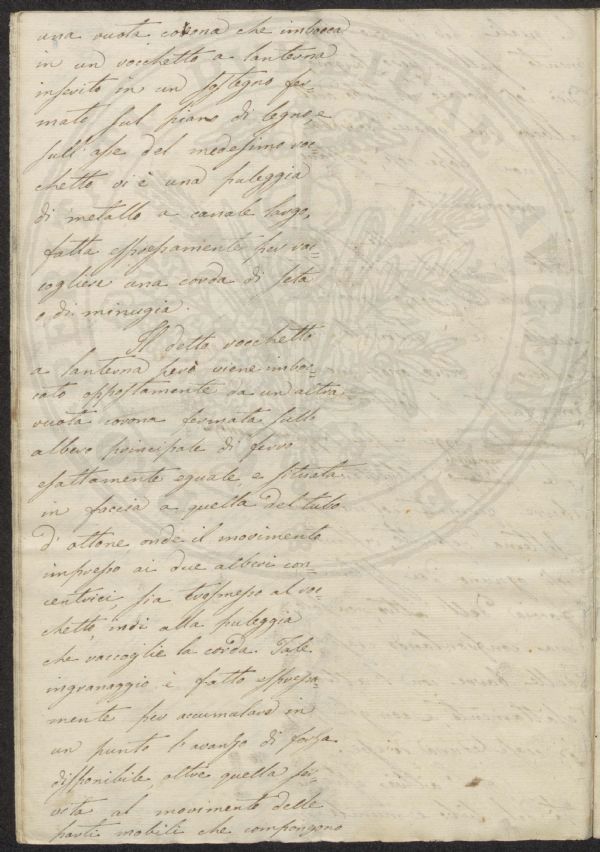 una ruota corona che imbocca
in un rocchetto a lanterna
inserito in un sostegno fer-
mato sul piano di legno, e
sull'asse del medesimo roc-
chetto vi è una puleggia
di metallo a canale largo,
fatta espressamente per rac-
cogliere una corda di seta
o di minugia.
Il detto rocchetto
a lanterna però viene imboc-
cato oppostamente da un'altra
ruota corona fermata sullo
albero principale di ferro
esattamente eguale, e situata
in faccia a quella del tubo
d'ottone, onde il movimento
impresso ai due alberi con-
centrici, sia trasmesso al roc-
chetto, indi alla puleggia
che raccoglie la corda. Tale
ingranaggio è fatto espressa-
mente per accumulare in
un punto l'avanzo di forza
disponibile, oltre quella ser-
vita al movimento delle
parti mobili che compongono